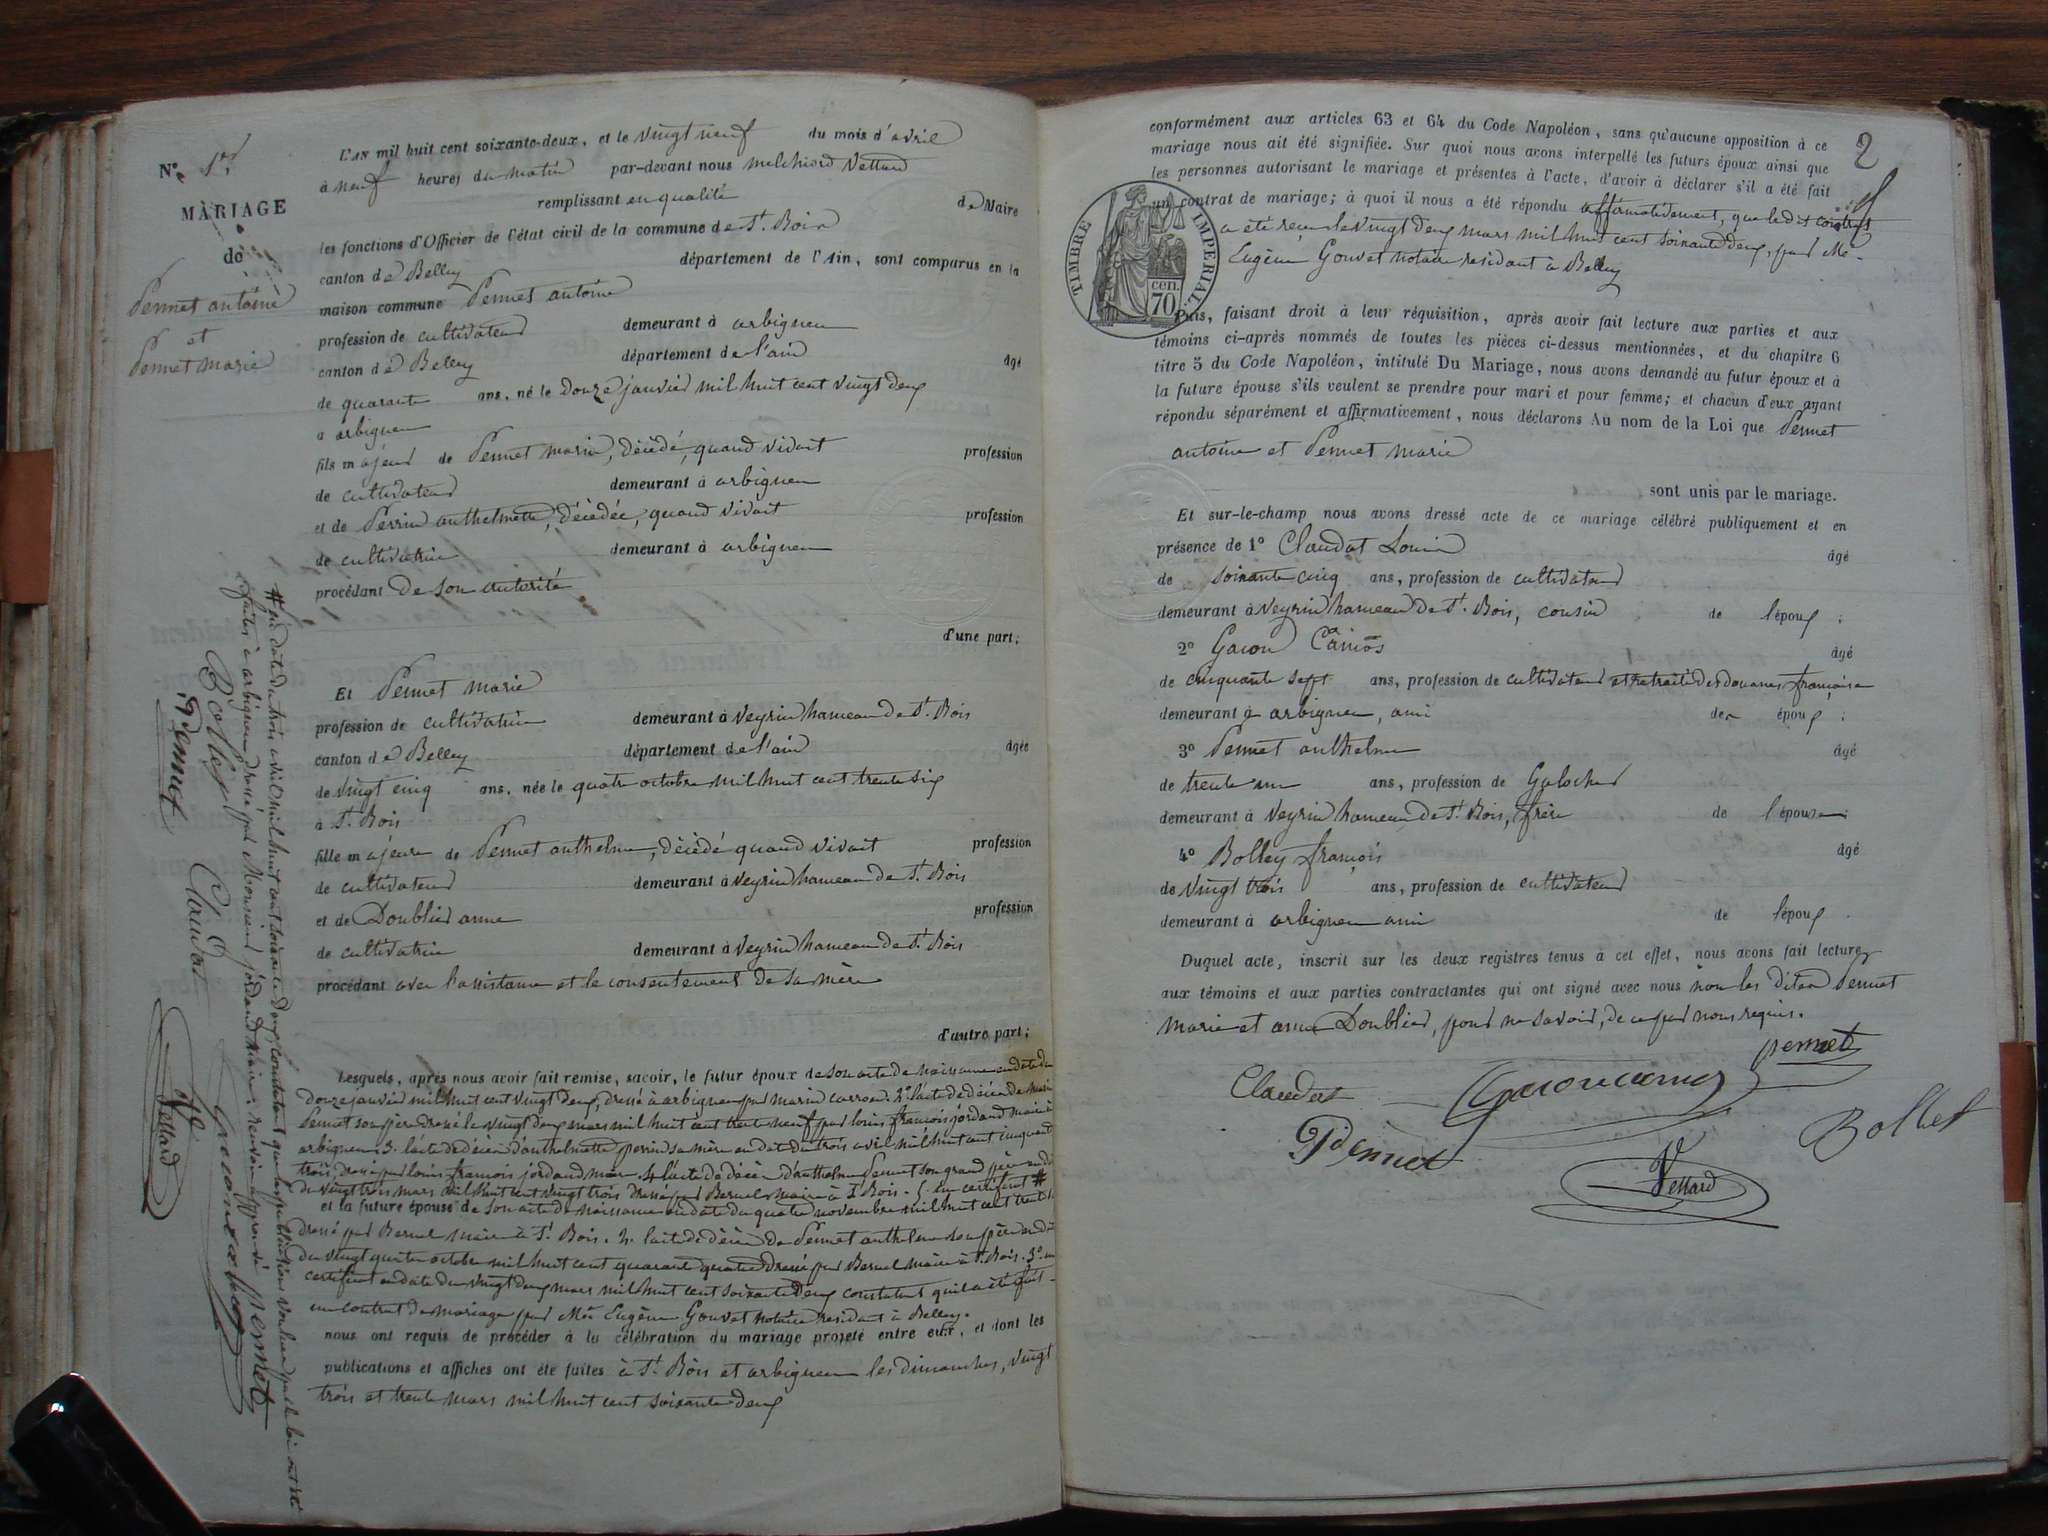 N° 1er
MARIAGE
de
Pennet antoine
et
Pennet marie
L'AN mil huit cent soixante-deux, et le vingt neuf du mois d'avril
à neuf heures du matin par-devant nous melchiord Vettard
remplissant en qualité de Maire
les fonctions d'Officier de l'état civil de la commune de St. Bois
canton de Belley département de l'Ain, sont comparus en la
maison commune Pennet antoine
profession de cultivateur demeurant à arbignieu
canton de Belley département de l'ain âgé
de quarante ans, né le Douze janvier mil huit cent vingt deux
a arbignieu
fils majeur de Pennet marin, Décédé, quand vivait profession
de cultivateur demeurant à arbignieu
et de Perrin anthelmette, Décédée, quand vivait profession
de cultivatrice demeurant à arbignieu
procédant de son autorité
d'une part;
Et Pennet marie
profession de cultivatrice demeurant à Veyrin hameau de St. Bois
canton de Belley département de l'ain âgée
de vingt cinq ans, née le quatre octobre mil huit cent trente six
à St. Bois
fille majeure de Pennet anthelme, Décédé quand vivait profession
de cultivateur demeurant à Veyrin hameau de St. Bois
et de Doublier anne profession
de cultivatrice demeurant à Veyrin hameau de St. Bois
procédant avec l'assistance et le consentement de sa mère
d'autre part;
Lesquels, après nous avoir fait remise, savoir, le futur époux de son acte de naissance en date du
Douze janvier mil huit cent vingt deux, dressé à arbignieu par marin carron. 2° l'acte de décès de marin
Pennet son père dressé le vingt deux mars mil huit cent trente neuf par louis françois jordand maire à
arbignieu. 3. l'acte de décès d'anthelmette perrin sa mère en date du trois avril mil huit cent cinquante
trois dressé par louis françois jordand maire. 4 l'acte de décès d'anthelme Pennet son grand père en date
du vingt trois mars mil huit cent vingt trois dressé par Bernel maire à St Bois. 5. un certificat #
et la future épouse de son acte de naissance en date du quatre novembre mil huit cent trente six
dressé par Bernel maire à St. Bois. 2. l'acte de décès de Pennet anthelme son père en date
du vingt quatre octobre mil huit cent quarante quatre dressé par Bernel maire à St. Bois. 3° un
certificat en date du vingt deux mars mil huit cent soixante deux constatant qu'il a été fait
un contrat de mariage par Me Eugène Gouvet notaire residant à Belley.
nous ont requis de procéder à la célébration du mariage projeté entre eux, et dont les
publications et affiches ont été faites à St Bois et arbignieu les dimanches, vingt
trois et trente mars mil huit cent soixante deux
# en date du trois avril mil huit cent soixante deux constatant que les publications voulues par la loi ont été
faites à arbignieu dressé par Monsieur jordand Maire, renvoi approuvé pennet
Bolley
Pennet
Claudat
Vettard
2
conformément aux articles 63 et 64 du Code Napoléon, sans qu'aucune opposition à ce
mariage nous ait été signifiée. Sur quoi nous avons interpellé les futurs époux ainsi que
les personnes autorisant le mariage et présentes à l'acte, d'avoir à déclarer s'il a été fait
un contrat de mariage; à quoi il nous a été répondu affirmativement, que le dit contrat
a été reçu le vingt deux mars mil huit cent soixante deux, par Me
Eugène Gouvet notaire residant à Belley
TIMBRE IMPERIAL
70 cen.
Puis, faisant droit à leur réquisition, après avoir fait lecture aux parties et aux
témoins ci-après nommés de toutes les pièces ci-dessus mentionnées, et du chapitre 6
titre 5 du Code Napoléon, intitulé Du Mariage, nous avons demandé au futur époux et à
la future épouse s'ils veulent se prendre pour mari et pour femme; et chacun d'eux ayant
répondu séparément et affirmativement, nous déclarons Au nom de la Loi que Pennet
antoine et Pennet marie
sont unis par le mariage.
Et sur-le-champ nous avons dressé acte de ce mariage célébré publiquement et en
présence de 1° Claudat Louis âgé
de soixante cinq ans, profession de cultivateur
demeurant à Veyrin hameau de St. Bois, cousin de l'époux;
2° Gacon âgé
de cinquante sept ans, profession de cultivateur et retraité des douanes française
demeurant à arbignieu, ami de époux;
3° Pennet anthelme âgé
de trente un ans, profession de Galocher
demeurant à Veyrin hameau de St. Bois, frère de l'épouse;
4° Bolley françois âgé
de vingt trois ans, profession de cultivateur
demeurant à arbignieu ami de l'époux.
Duquel acte, inscrit sur les deux registres tenus à cet effet, nous avons fait lecture
aux témoins et aux parties contractantes qui ont signé avec nous non les dites Pennet
marie et anne Doublier, pour ne savoir, de ce par nous requis.
pennet
Claudat
Pennet
Bollet
Vettard